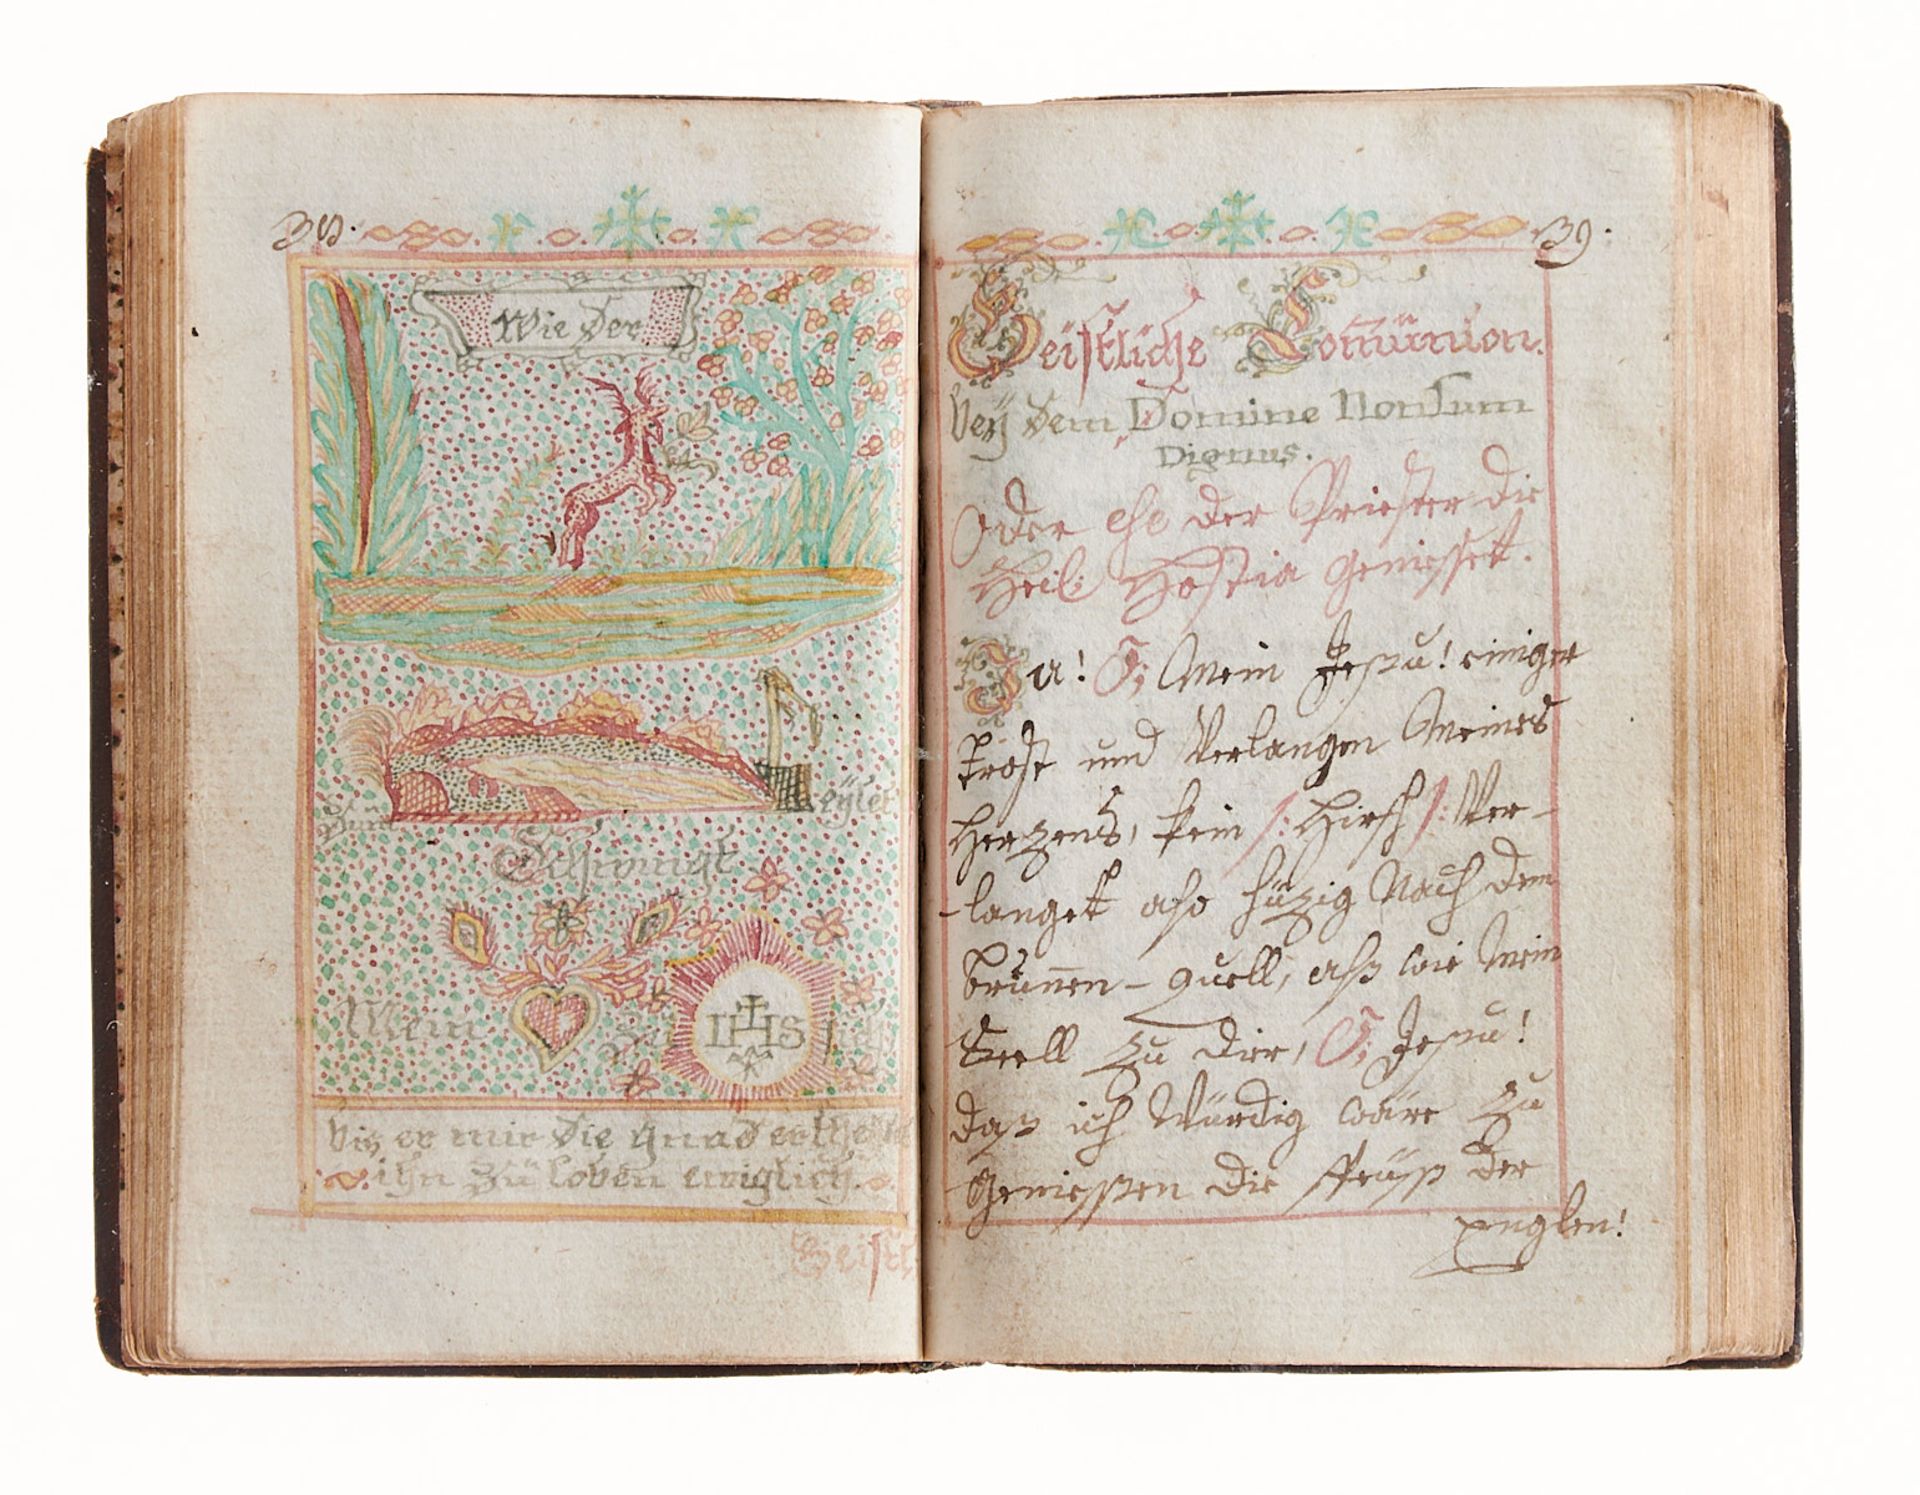 38.
Wie der
Zum
eyler
Schwingt
Mein
Zu
IHS
sich
biß er mir die gnad erthe
ihn Zü loben ewiglich.
Geistl:
39.
Geistliche Com̄union.
Beÿ dem Domine Non sum
Dignus.
Oder ehe der Priester die
Heil: Hostia geniesset.
Ja! O, Mein Jesu! einiger
trost und Verlangen Meines
Hertzens, kein /: Hirsch /: Ver-
-langet also hützig Nach dem
brun̄en-quell, alß wie Mein
Seell zu dier, O, Jesu!
daß ich Würdig wäre zu
geniessen die speiß der
Englen!